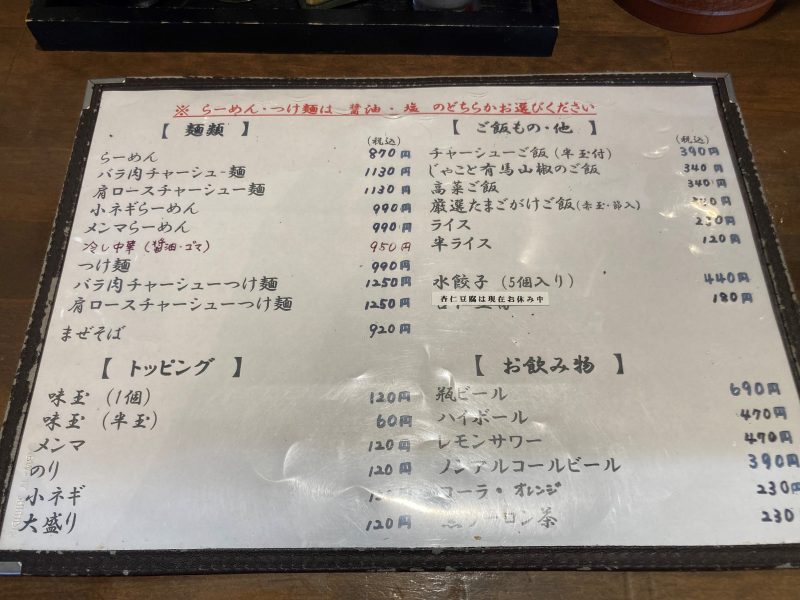 ※ らーめん・つけ麺は 醤油・塩 のどちらかお選びください
【 麺類 】
(税込)
らーめん 870円
バラ肉チャーシュー麺 1130円
肩ロースチャーシュー麺 1130円
小ネギらーめん 990円
メンマらーめん 990円
冷し中華(醤油・ゴマ) 950円
つけ麺 990円
バラ肉チャーシューつけ麺 1250円
肩ロースチャーシューつけ麺 1250円
まぜそば 920円
【 トッピング 】
味玉(1個) 120円
味玉(半玉) 60円
メンマ 120円
のり 120円
小ネギ 円
大盛り 120円
【 ご飯もの・他 】
(税込)
チャーシューご飯(半玉付) 390円
じゃこと有馬山椒のご飯 340円
高菜ご飯 340円
厳選たまごがけご飯(赤玉・節入) 340円
ライス 230円
半ライス 120円
水餃子(5個入り) 440円
杏仁豆腐は現在お休み中 180円
【 お飲み物 】
瓶ビール 690円
ハイボール 470円
レモンサワー 470円
ノンアルコールビール 390円
コーラ・オレンジ 230円
ウーロン茶 230